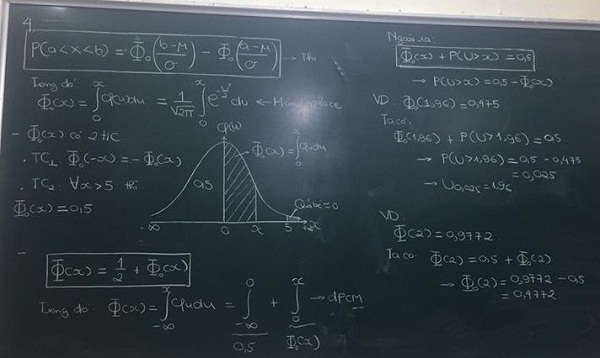 4,
P(a<x<b) = Φ₀((b-μ)/σ) - Φ₀((a-μ)/σ) → Thi
Trong đó:
Φ₀(x) = ∫₀ˣ φ(u)du = 1/√2π ∫₀ˣ e^(-u²/2) du ← Hàm Laplace
- Φ₀(x) có 2 t/c
. TC1: Φ₀(-x) = -Φ₀(x)
. TC2: ∀x>5 thì
Φ₀(x) = 0,5
φ(u)
Φ₀(x) = ∫₀ˣ φ(u)du
0,5
-∞ 0 x 5 +∞
-
Φ(x) = 1/2 + Φ₀(x)
Trong đó: Φ(x) = ∫₋∞ˣ φ(u)du = ∫₋∞⁰ + ∫₀ˣ → đpcm
0,5 Φ₀(x)
Ngoài ra:
Φ₀(x) + P(U>x) = 0,5
→ P(U>x) = 0,5 - Φ₀(x)
VD: Φ₀(1,96) = 0,475
Ta có:
Φ₀(1,96) + P(U>1,96) = 0,5
→ P(U>1,96) = 0,5 - 0,475
= 0,025
→ U0,025 = 1,96
VD:
Φ(2) = 0,9772
Ta có: Φ(2) = 0,5 + Φ₀(2)
→ Φ₀(2) = 0,9772 - 0,5
= 0,4772